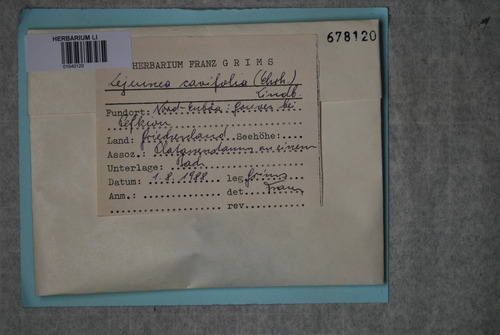 HERBARIUM LI
678120
HERBARIUM FRANZ GRIMS
Lejeunea cavifolia (Ehrh.)
Lindb.
Fundort: Nord-Euböa: bei
Land: Griechenland Seehöhe:
Assoz.: Platanenstamm an einem
Unterlage: Bach
Datum: 1.8.1988 leg. Grims
Anm.: det. Franz
rev.